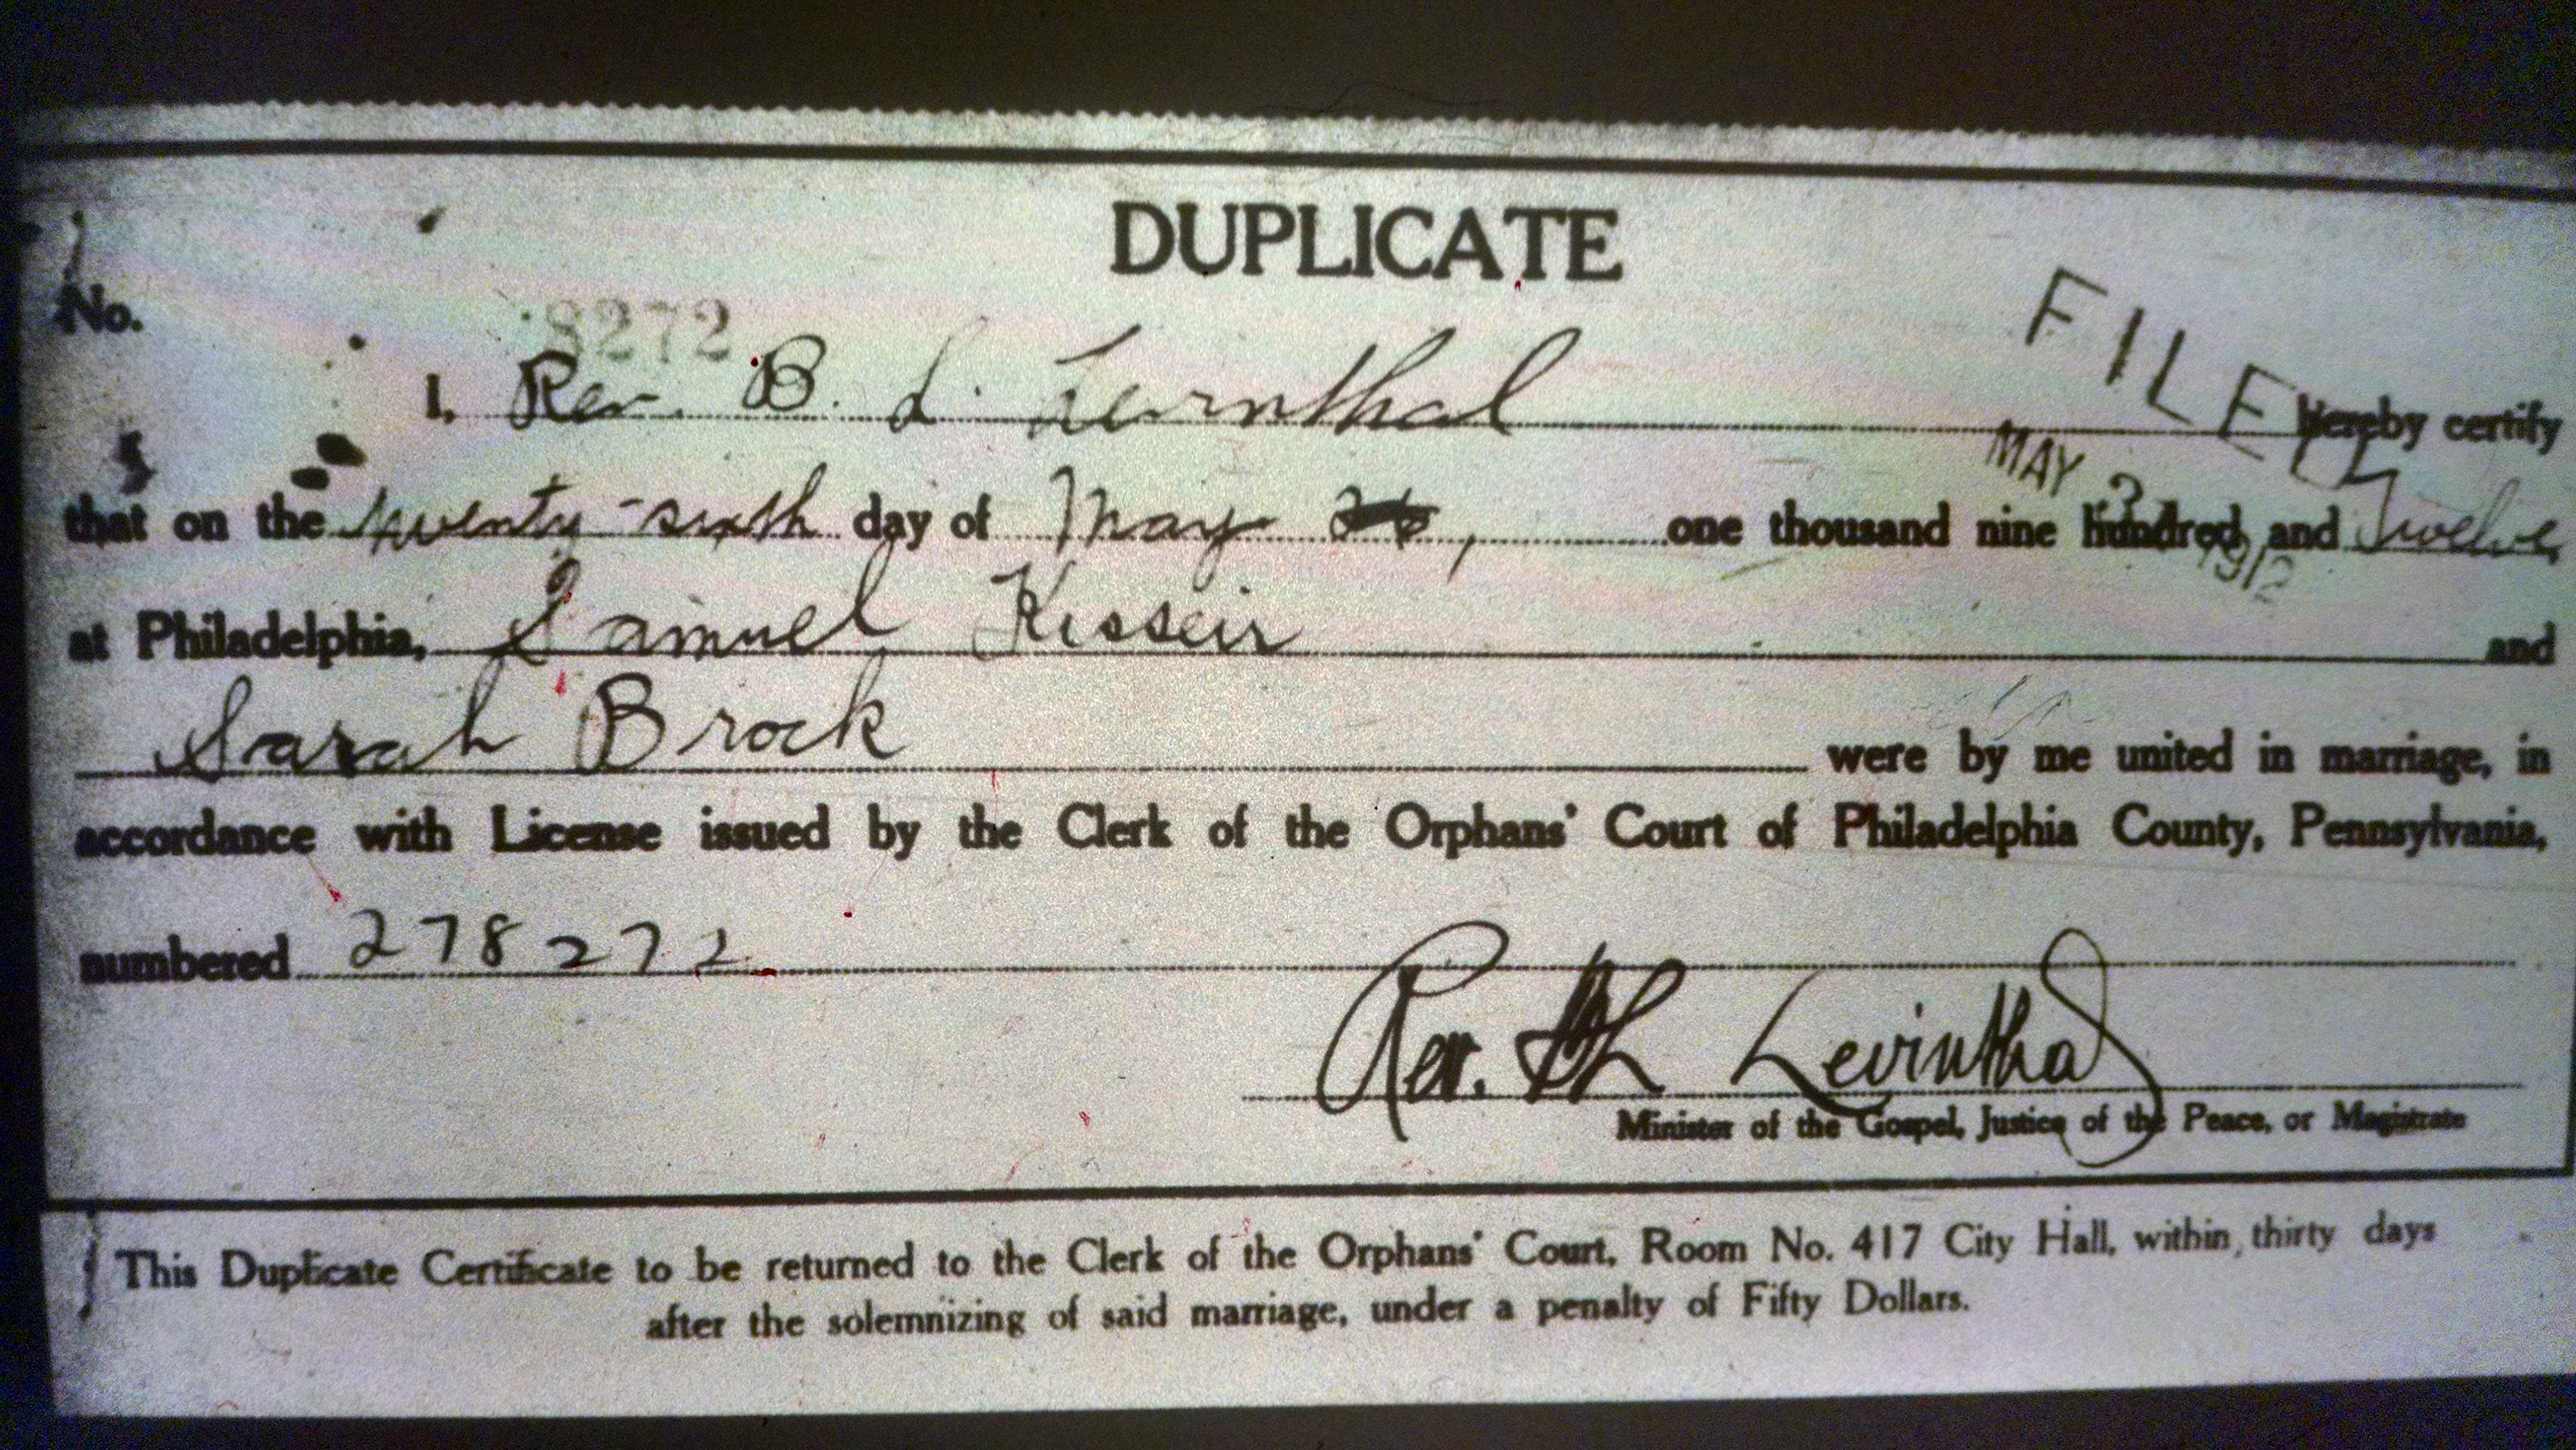 DUPLICATE
No. 8272
FILED
I, Rev. B. L. Levinthal hereby certify
MAY 1912
that on the twenty-sixth day of May , one thousand nine hundred and Twelve,
at Philadelphia, Samuel Kisseir and
Sarah Brock were by me united in marriage, in
accordance with License issued by the Clerk of the Orphans' Court of Philadelphia County, Pennsylvania,
numbered 278272
Rev. B L Levinthal
Minister of the Gospel, Justice of the Peace, or Magistrate
This Duplicate Certificate to be returned to the Clerk of the Orphans' Court, Room No. 417 City Hall, within thirty days
after the solemnizing of said marriage, under a penalty of Fifty Dollars.